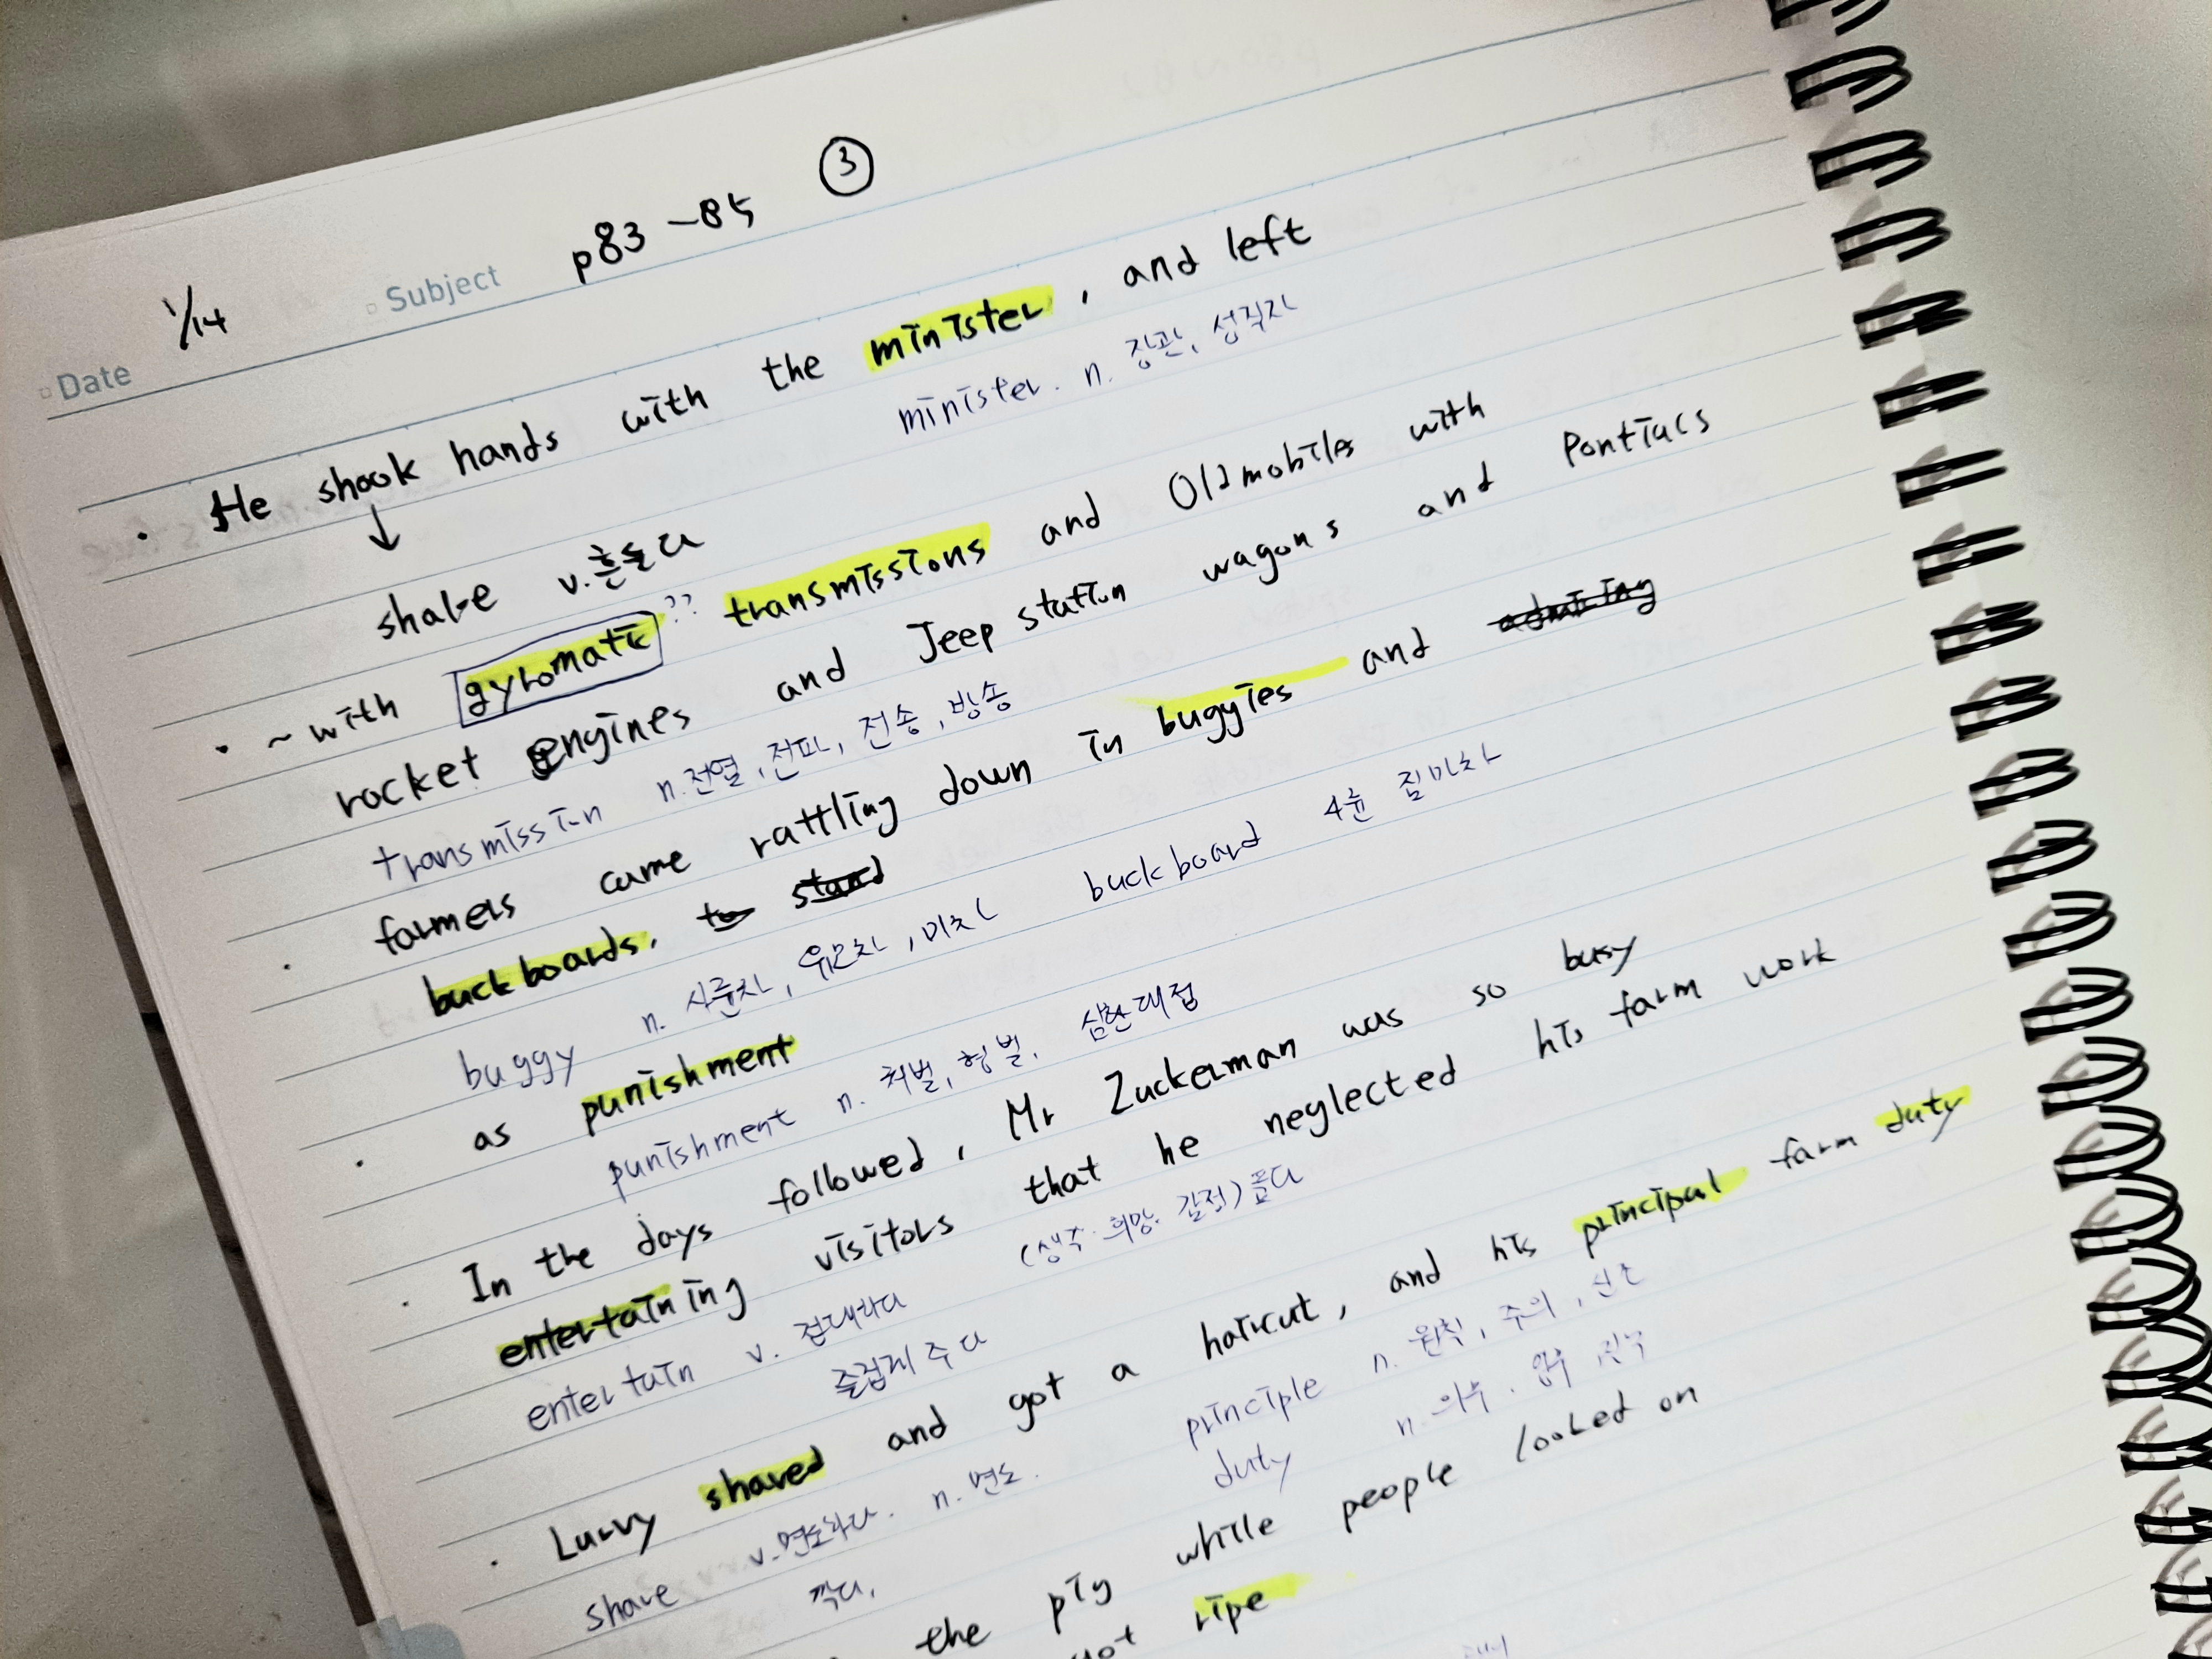 p83-85 ③
Date 1/14 Subject
· He shook hands with the minister, and left
↓ minister. n. 장관, 성직자
shake v.흔들다
· ~with gyromatic?? transmissions and Oldmobiles with
rocket engines and Jeep station wagons and Pontiacs
transmission n.전열, 전파, 전송, 방송
· farmers came rattling down in buggies and
buckboards.
buggy n. 사륜차, 유모차, 미친 buckboard 4륜 짐마차
· as punishment
punishment n. 처벌, 형벌, 심한대접
· In the days followed, Mr Zuckerman was so busy
entertaining visitors that he neglected his farm work
entertain v. 접대하다 (생각·희망·감정) 품다
즐겁게 주다
· Lurvy shaved and got a haircut, and his principal farm duty
shave v.면도하다. n.면도. principle n. 원칙, 주의, 신조
깍다, duty n. 의무.
the pig while people looked on
not ripe